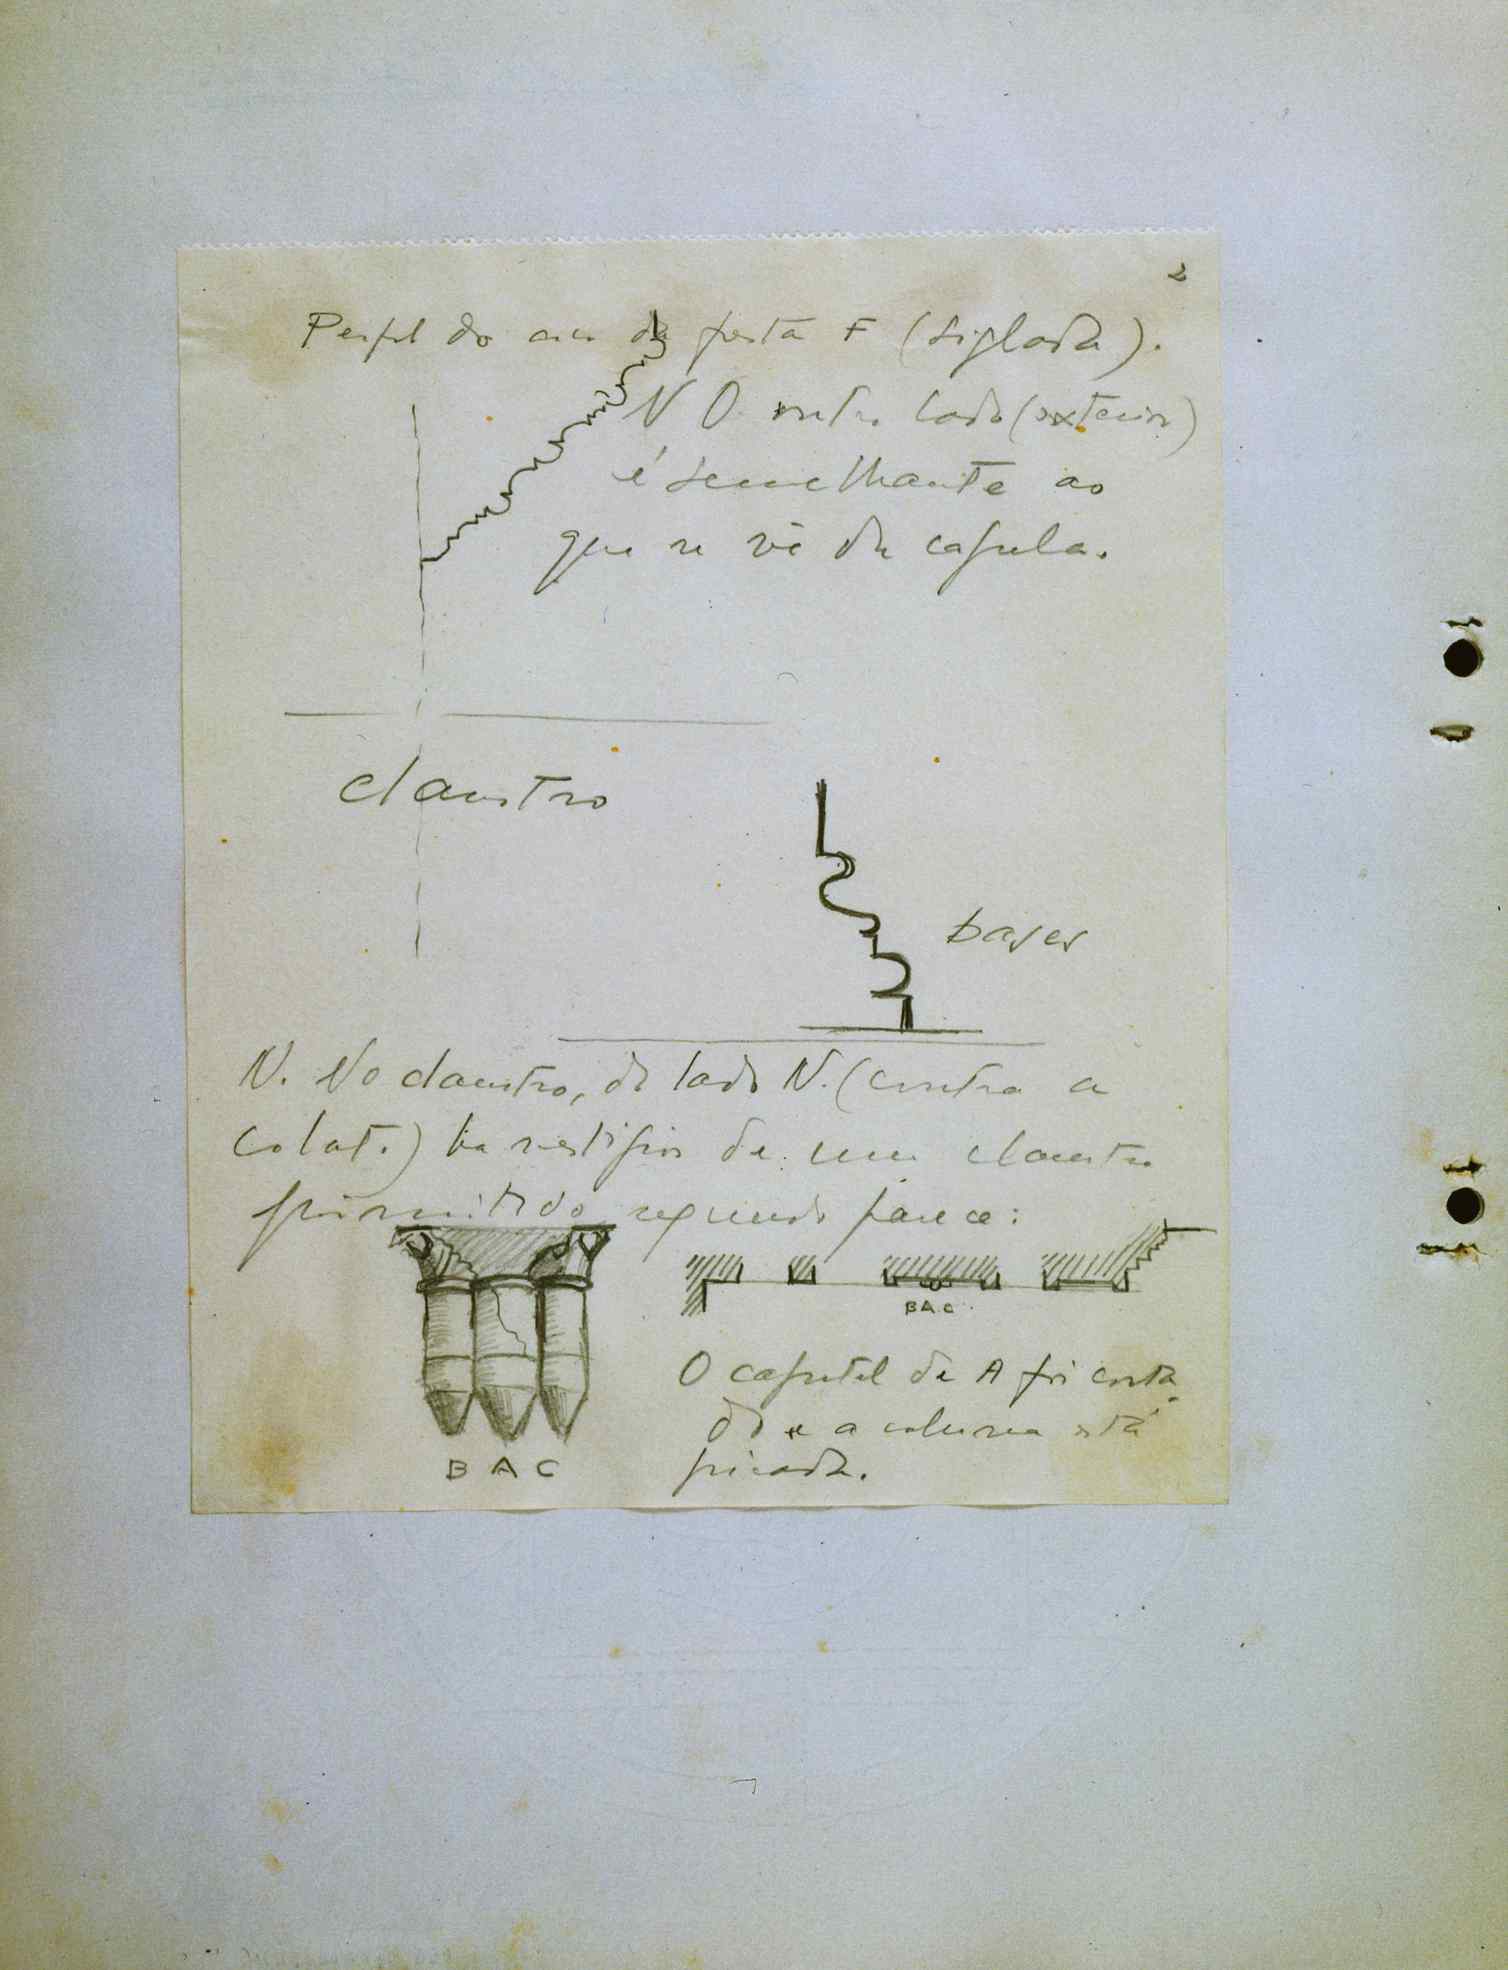 2
Perfil do arco da porta F (siglada).
N O outro lado (exterior)
é semelhante ao
que se vê da capela.
claustro
bases
N. No claustro, do lado N. (contra a
colat.) ha vestígios de um claustro
primitivo segundo parece:
BAC
O capitel de A foi corta
do e a coluna está
picada.
B A C